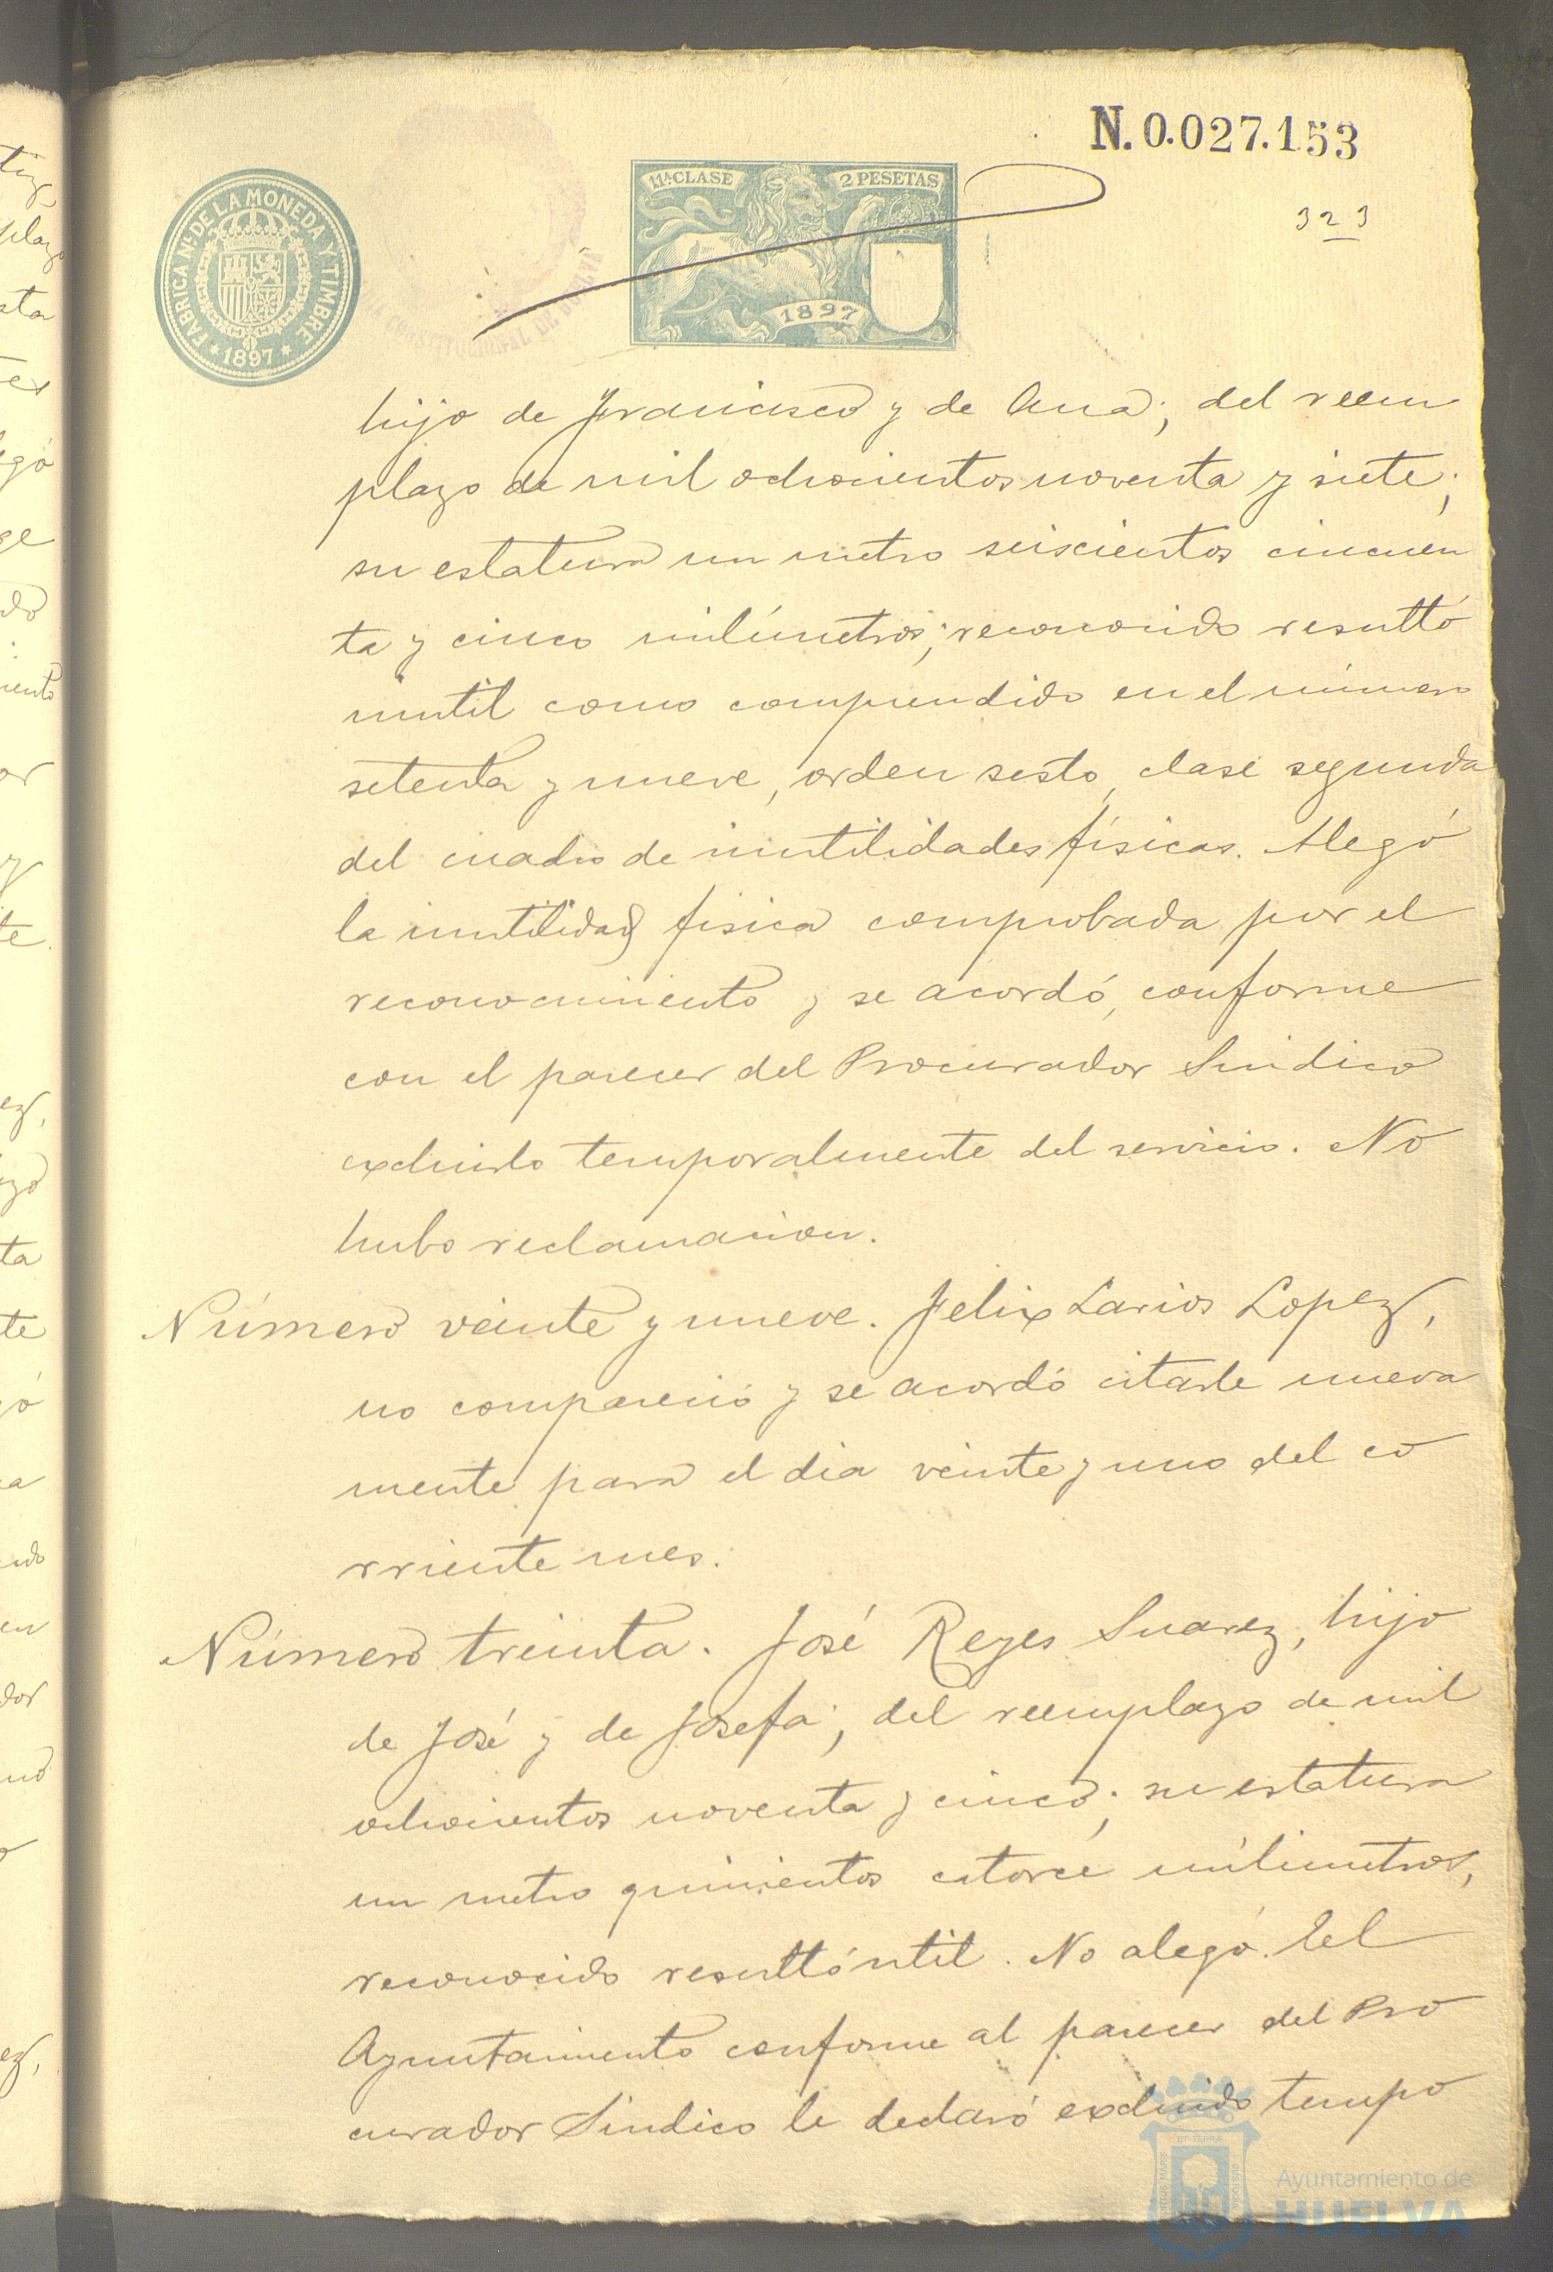 N. 0.027.153
323
FABRICA Nl. DE LA MONEDA Y TIMBRE
* 1897 *
11ª CLASE
2 PESETAS
1897
CONSTITUCIONAL DE HUELVA
hijo de Francisco y de Ana; del reem
plazo de mil ochocientos noventa y siete;
su estatura un metro seiscientos cincuen
ta y cinco milímetros; reconocido resultó
inutil como comprendido en el número
setenta y nueve, orden sesto, clase segunda
del cuadro de inutilidades físicas. Alegó
la inutilidad fisica comprobada por el
reconocimiento y se acordó, conforme
con el parecer del Procurador Sindico
excluirlo temporalmente del servicio. No
hubo reclamacion.
Número veinte y nueve. Felix Larios Lopez,
no compareció y se acordó citarle nueva
mente para el dia veinte y uno del co
rriente mes.
Número treinta. José Reyes Suarez, hijo
de José y de Josefa; del reemplazo de mil
ochocientos noventa y cinco; su estatura
un metro quinientos catorce milimetros,
reconocido resultó util. No alegó. El
Ayuntamiento conforme al parecer del Pro
curador Sindico le declaró excluido tempo
Ayuntamiento de
HUELVA